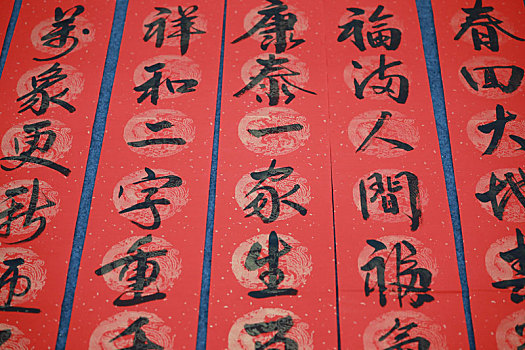 春回大地喜
福满人間福氣
康泰一家生百
祥和二字重千
萬象更新